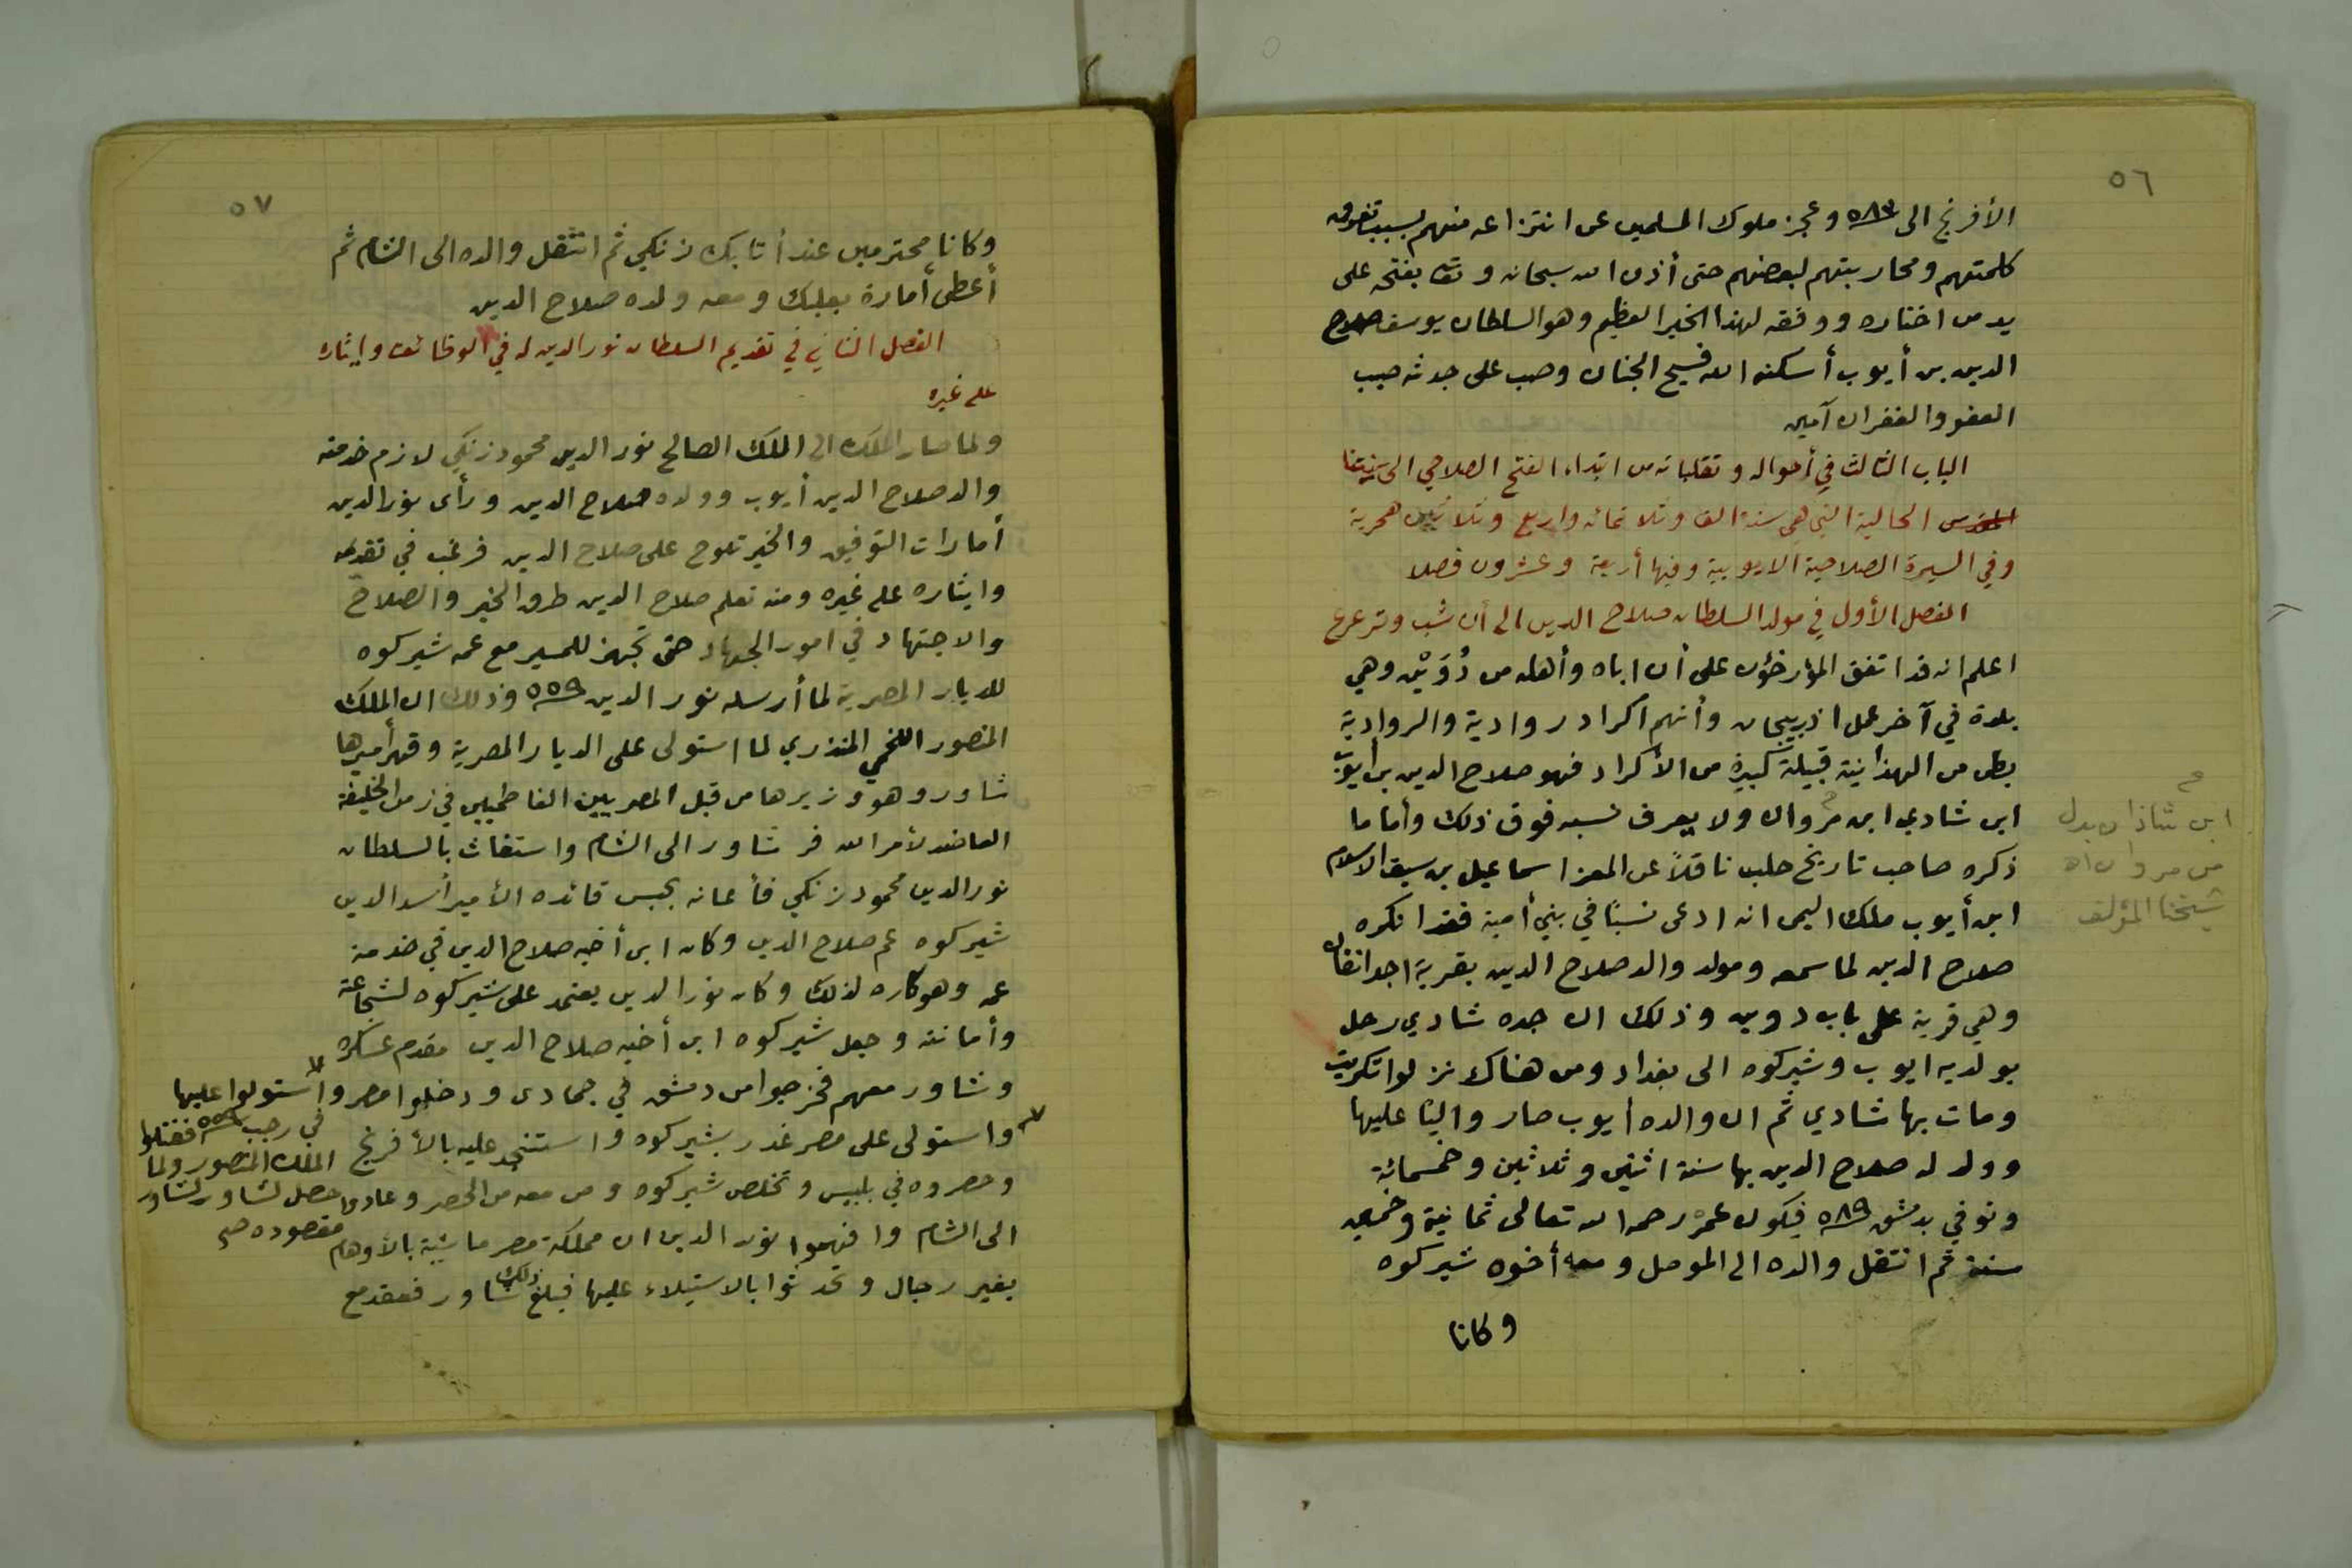 ٥٦
الأفرنج الى ٥٨٣ وعجز ملوك المسلمين عن انتزاعه منهم بسبب تفرق
كلمتهم ومحاربتهم لبعضهم حتى أذن الله سبحانه وتعا بفتحه على
يد من اختاره ووفقه لهذا الخير العظيم وهو السلطان يوسف صلاح
الدين بن أيوب أسكنه الله فسيح الجنان وصب على جدثه صبيب
العفو والغفران آمين
الباب الثالث في أحواله وتقلباته من ابتداء الفتح الصلاحي الى سنتنا
الحالية التي هي سنة الف وثلاثمائه واربع وثلاثين هجرية
وفي السيرة الصلاحية الايوبية وفيها أربعة وعشرون فصلا
الفصل الأول في مولد السلطان صلاح الدين الى أن شب وترعرع
اعلم انه قد اتفق المؤرخون على أن اباه وأهله من دُوَيْن وهي
بلدة في آخر عمل اذربيجان وأنهم اكراد روادية والروادية
بطن من الهذانية قبيلة كبيرة من الأكراد فهو صلاح الدين بن أيوب
ابن شادي ابن مروان ولا يعرف نسبه فوق ذلك وأما ما
ذكره صاحب تاريخ حلب ناقلاً عن المعز اسماعيل بن سيف الاسلام
ابن أيوب ملك اليمن انه ادعى نسبًا في بني أمية فقد انكره
صلاح الدين لما سمعه ومولد والد صلاح الدين بقرية اجدانقان
وهي قرية على باب دوين وذلك ان جده شادي رحل
بولديه ايوب وشيركوه الى بغداد ومن هناك نزلوا تكريت
ومات بها شادي ثم ان والده أيوب صار واليًا عليها
وولد له صلاح الدين بها سنة اثنين وثلاثين وخمسمائة
وتوفي بدمشق ٥٨٩ فيكون عمره رحمه الله تعالى ثمانية وخمسين
سنة ثم انتقل والده الى الموصل ومعه أخوه شيركوه
وكانا
ابن شاذان بدل
من مروان اه
شيخنا المؤلف
٥٧
وكانا محترمين عند أتابك زنكي ثم انتقل والده الى الشام ثم
أعطي أمارة بعلبك ومعه ولده صلاح الدين
الفصل الثاني في تقديم السلطان نور الدين له في الوظائف وإيثاره
على غيره
ولما صار الملك الى الملك الصالح نور الدين محمود زنكي لازم خدمته
والد صلاح الدين أيوب وولده صلاح الدين ورأى نور الدين
أمارات التوفيق والخير تلوح على صلاح الدين فرغب في تقديمه
وايثاره على غيره ومنه تعلم صلاح الدين طرق الخير والصلاح
والاجتهاد في امور الجهاد حتى تجهز للمسير مع عمه شيركوه
للديار المصرية لما أرسله نور الدين ٥٥٩ وذلك ان الملك
المنصور اللخمي المنذري لما استولى على الديار المصرية وقهر أميرها
شاور وهو وزيرها من قبل المصريين الفاطميين في زمن الخليفة
العاضد لأمر الله فر شاور الى الشام واستغاث بالسلطان
نور الدين محمود زنكي فأعانه بجيش قائده الأمير أسد الدين
شيركوه عم صلاح الدين وكان ابن أخيه صلاح الدين في خدمة
عمه وهو كاره لذلك وكان نور الدين يعتمد على شيركوه لشجاعته
وأمانته وجعل شيركوه ابن أخيه صلاح الدين مقدم عسكره
وشاور معهم فخرجوا من دمشق في جمادى ودخلوا مصر واستولوا عليها
في رجب ٥٥٩ فقتلوا
الملك المنصور ولما
حصل لشاور
مقصوده صح
واستولى على مصر غدر بشيركوه واستنجد عليه بالأفرنج
وحصروه في بلبيس وتخلص شيركوه ومن معه من الحصر وعادوا
الى الشام وافهموا نور الدين ان مملكة مصر ماشية بالأوهام
بغير رجال وتحدثوا بالاستيلاء عليها فبلغ ذلك شاور فعقد مع